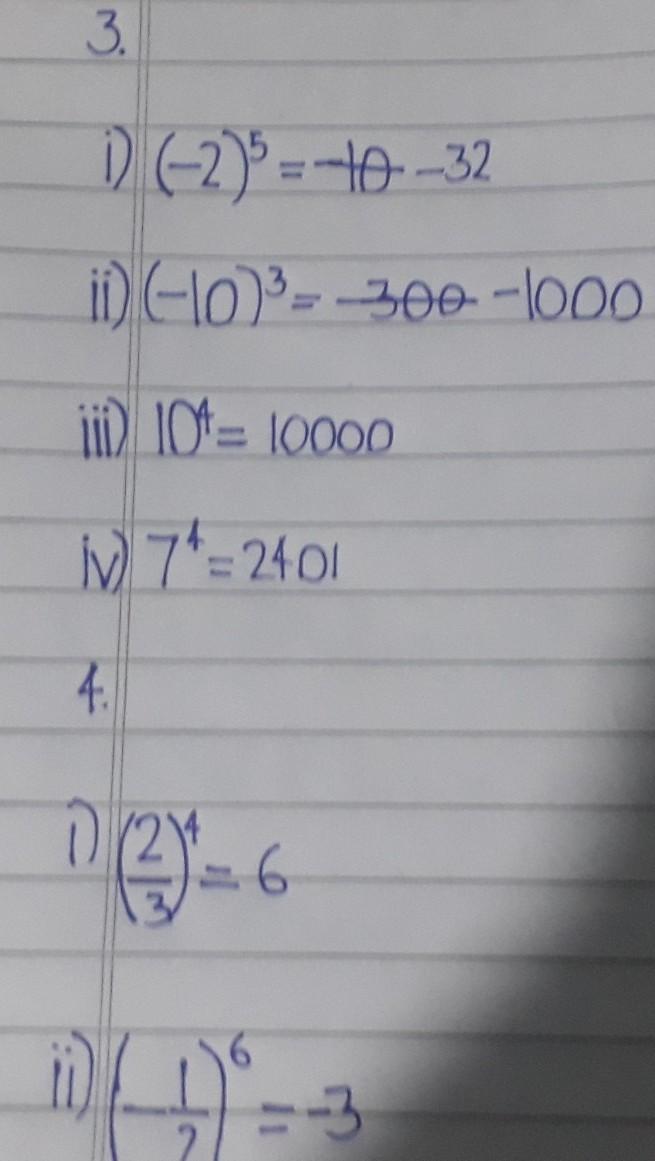 3.
i) (-2)⁵ = ~~-10~~ -32
ii) (-10)³ = ~~-300~~ -1000
iii) 10⁴ = 10000
iv) 7⁴ = 2401
4.
i) (2/3)⁴ = 6
ii) (-1/2)⁶ = -3